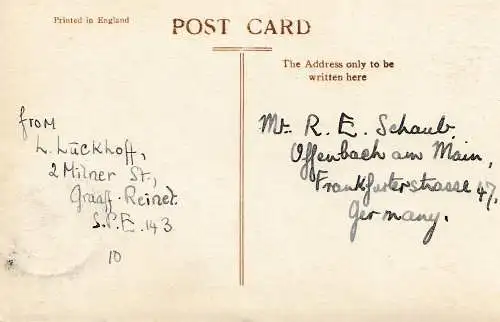 Printed in England
POST CARD
The Address only to be
written here
from
L. Lückhoff,
2 Milner St,,
Graaff-Reinet.
S.P.E. 143
10
Mr. R. E. Schaub,
Offenbach am Main,
Frankfurterstrasse 47,
Germany.